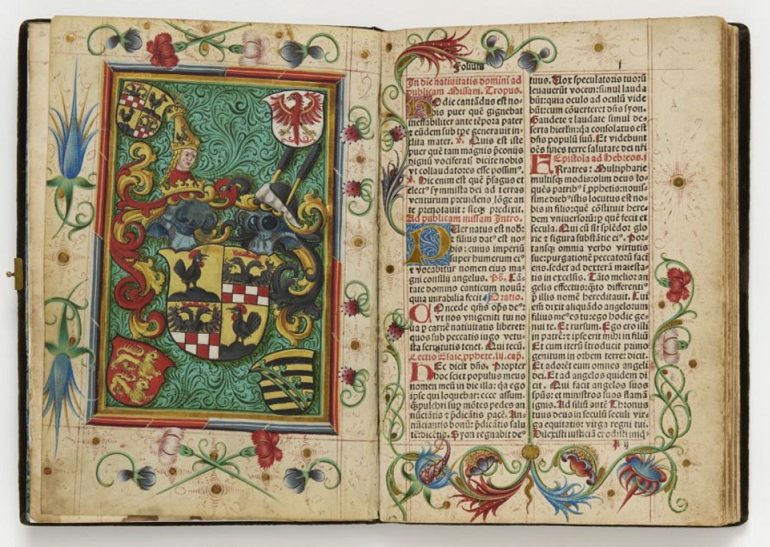 Folium j
In die natiuitatis domini ad
publicam Missam. Tropus.
HOdie cantādus est no
bis puer quē gignebat
ineffabiliter ante tēpora pater
et eūdem sub tpe generauit in
clita mater. v. Quis est iste
puer quē tam magnis pconijs
dignū vociferatis dicite nobis
vt collaudatores esse possimꝰ.
v. Hic enim est quē psagus et
electꝰ symmista dei ad terras
venturum preuidens lōge an
te prenotauit: sicqꝫ predixit.
Ad publicam missam Intro.
PUer natus est nob̄
et filius datꝰ est no
bis: cuius imperiū
super humerum eiꝰ
et vocabitur nomen eius ma
gni consilij angelus. Ps. Cā
tate domino canticum nouū:
quia mirabilia fecit. Oratio.
COncede qs̄ ops̄ deꝰ:
vt nos vnigeniti tui no
ua p carnē natiuitas liberet:
quos sub peccati iugo vetu
sta seruitus tenet. Qui tecū.
Lectio Esaie pphete. lij. cap.
HEc dicit dns̄. Propter
hoc sciet populus meus
nomen meū in die illa: qa ego
ipse qui loquebar: ecce assum.
Qꝫ pulchri sup mōtes pedes an
nūciātis ⁊ pdicātis pacē. An
nūciantis bonū: pdicātis salu
tē: dicētis. Syon regnabit deꝰ
tuus. Uox speculatorū tuorū
leuauerūt vocem: simul lauda
būt: quia oculo ad oculū vide
būt: cum cōuerterit dn̄s syon.
Gaudete et laudate simul de
serta hierlm̄: qa consolatus est
dn̄s populū suū. Et videbunt
oēs fines terre salutare dei nr̄i
Epistola ad Hebreos. j
FRatres: Multipharie
multisqꝫ modis: olim deus lo
quēs patribꝰ ī pphetis: nouis
sime diebꝰ istis locutus est no
bis in filio: quē cōstituit here
dem vniuersorū: p quē fecit et
secula. Qui cū sit splēdor glo
rie ⁊ figura substātie eiꝰ. Por
tansqꝫ omnia verbo virtutis
sue: purgationē peccatorū faci
ens. sedet ad dexterā maiesta
tis in excelsis. Tāto melior an
gelis effectus: qꝫto differentiꝰ
p illis nomē hereditauit. Cui
em̄ dixit aliquādo angelorum
filius meꝰ es tu: ego hodie ge
nui te. Et rursum. Ego ero illi
in patrē: ⁊ ipse erit mihi in filiū
Et cum iterū introducit primo
genitum in orbem terre: dicit.
Et adorēt eum omnes angeli
dei. Et ad angelos quidem di
cit. Qui facit angelos suos
spūs: et ministros suos flammā
ignis. Ad filiū autē Thronus
tuus deus in seculū seculi vir
ga equitatis: virga regni tui.
Dilexisti iusticiā et odisti iniq